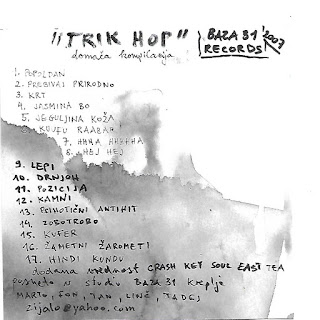 "TRIK HOP"
domača kompilacija
BAZA 31 '2003
RECORDS
1. POPOLDAN
2. PREBIVAJ PRIRODNO
3. KRT
4. JASMINA BO
5. JEGULJINA KOŽA
6. KOUFU RAAZAH
7. HHHA HHHHHA
8. HEJ HEJ
9. LEPI
10. DRNJOH
11. POZICIJA
12. KAMNI
13. PSIHOTIČNI ANTIHIT
14. ZOBOTROBO
15. KUFER
16. ŽAMETNI ŽAROMETI
17. HINDI KUNDU
dodana vrednost CRASH KEY SOUL EAST TEA
posneto v studiu BAZA 31 Kaplje
MARTO, FON, TAN, LINČ, TADEJ
zijalo@yahoo.com